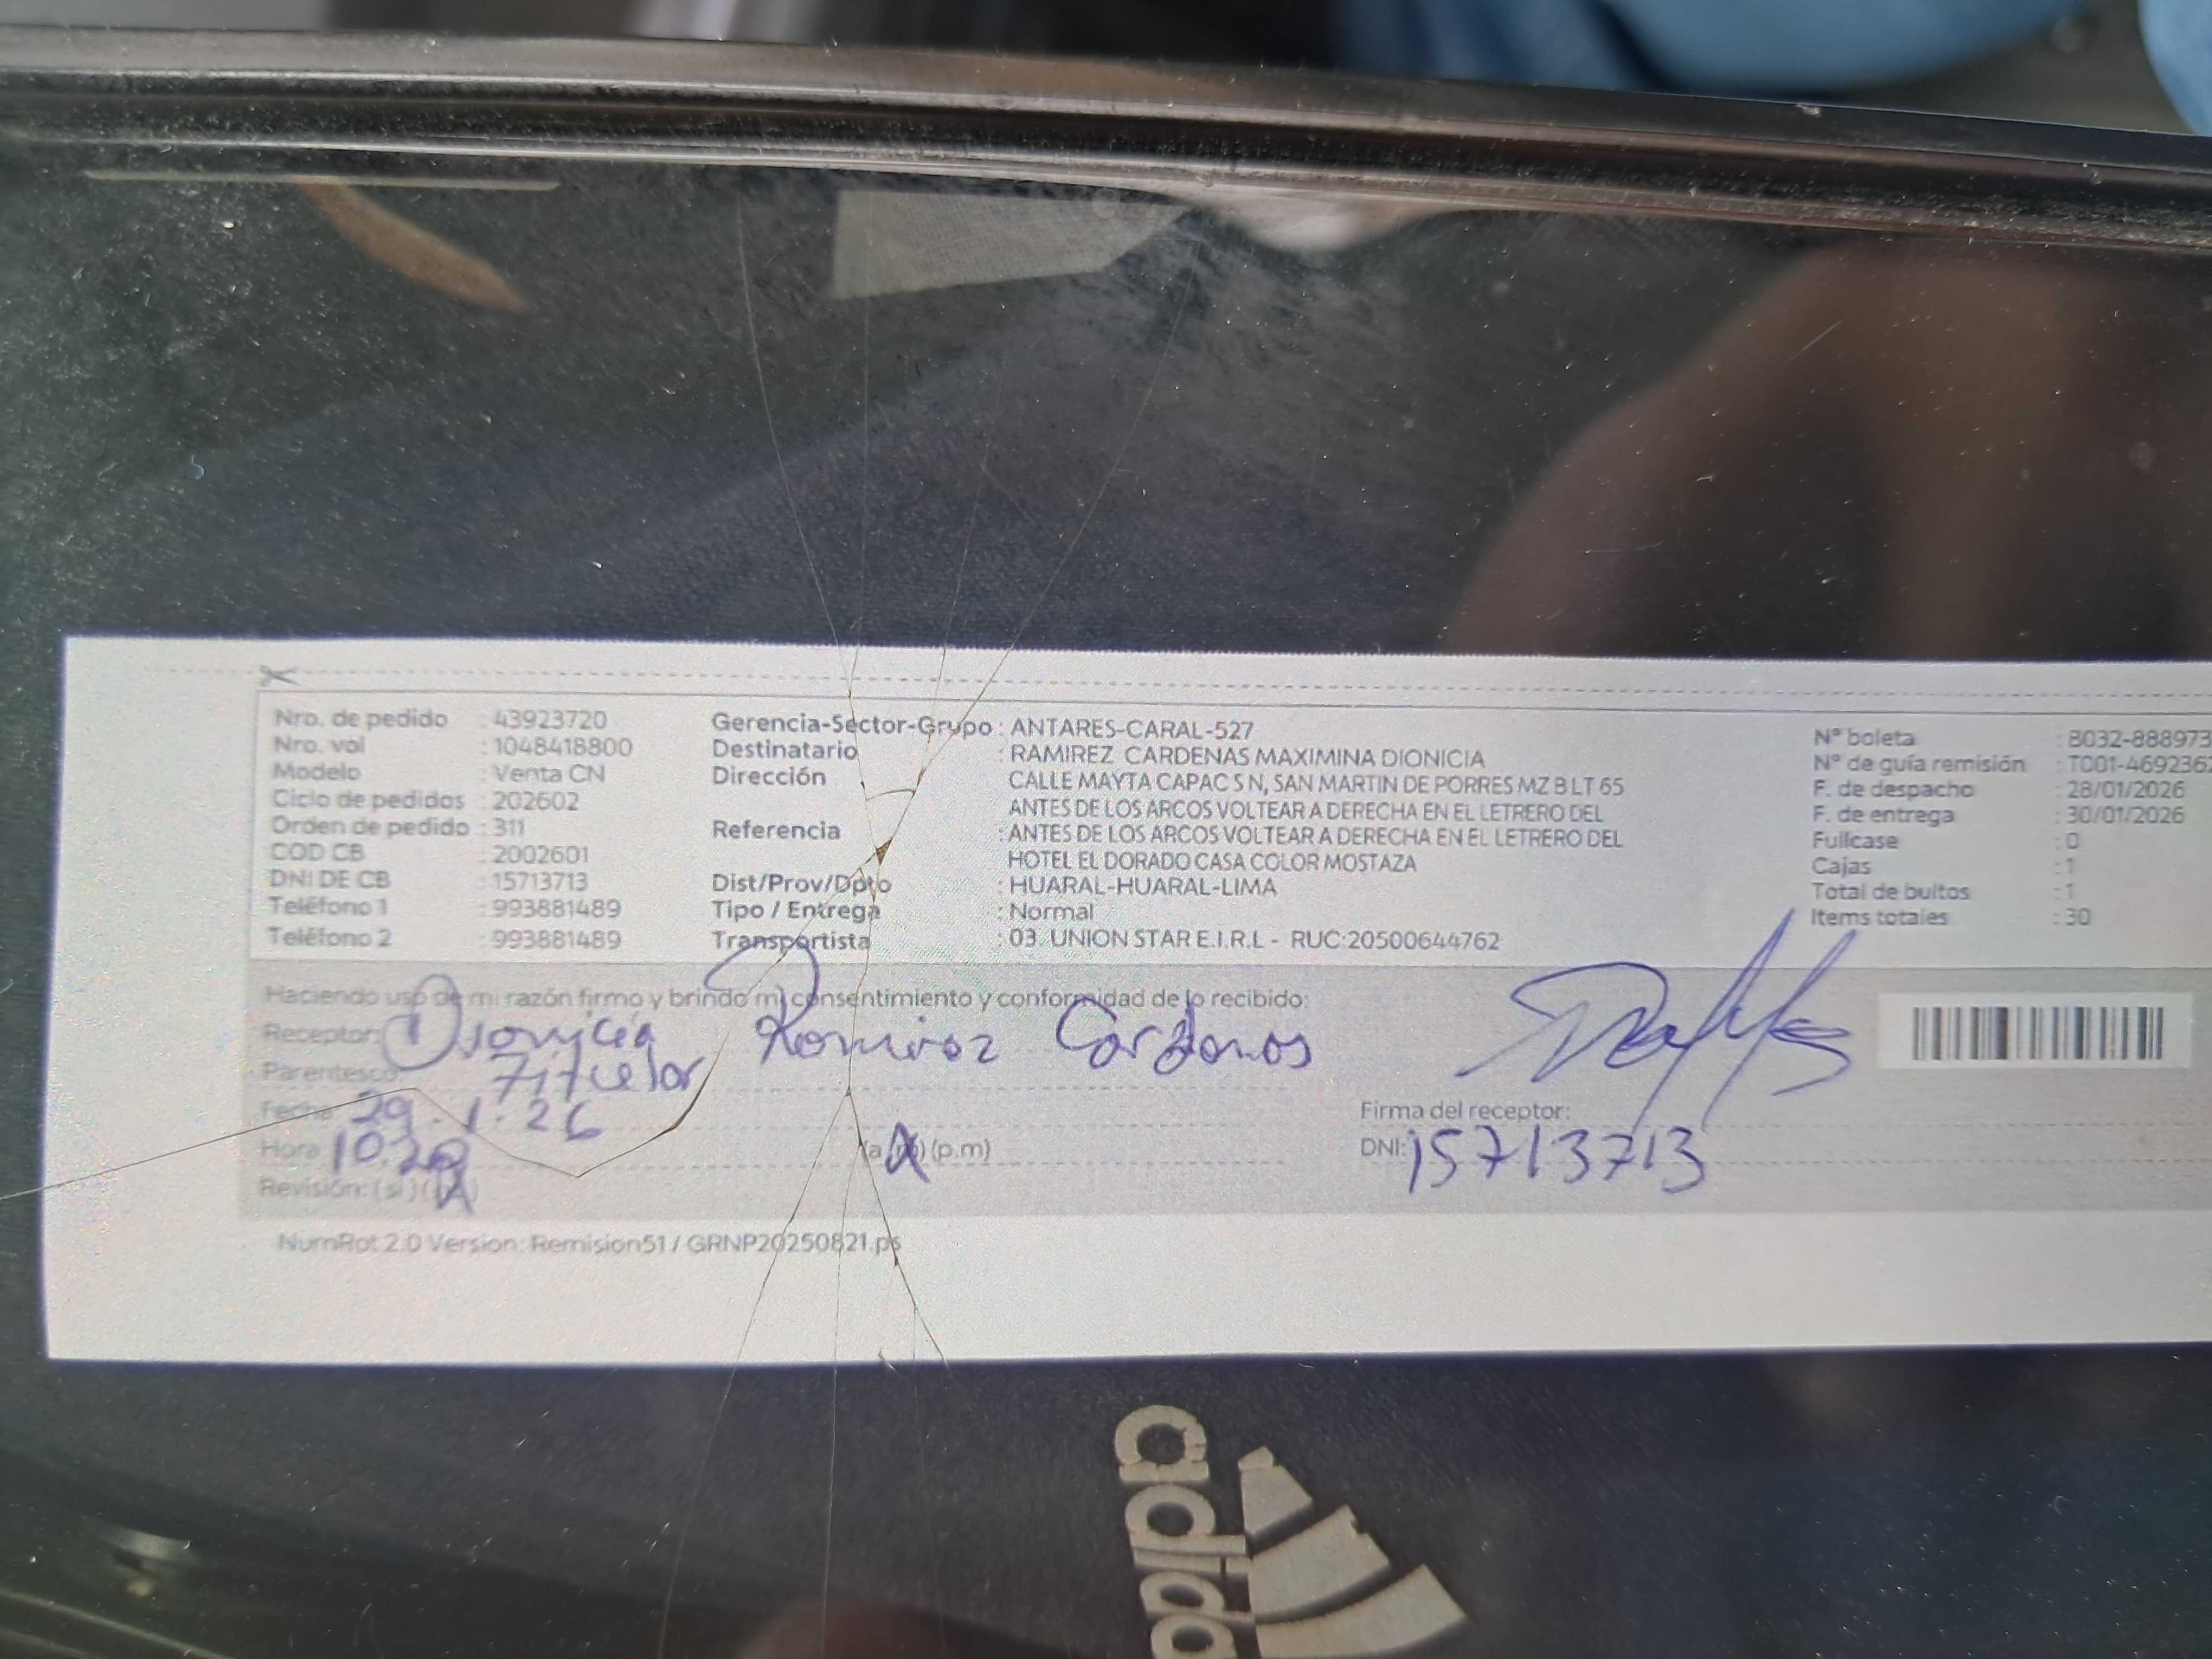 Nro. de pedido : 43923720
Nro. vol : 1048418800
Modelo : Venta CN
Ciclo de pedidos : 202602
Orden de pedido : 311
COD CB : 2002601
DNI DE CB : 15713713
Teléfono 1 : 993881489
Teléfono 2 : 993881489
Gerencia-Sector-Grupo : ANTARES-CARAL-527
Destinatario : RAMIREZ CARDENAS MAXIMINA DIONICIA
Dirección CALLE MAYTA CAPAC S N, SAN MARTIN DE PORRES MZ B LT 65
ANTES DE LOS ARCOS VOLTEAR A DERECHA EN EL LETRERO DEL
Referencia : ANTES DE LOS ARCOS VOLTEAR A DERECHA EN EL LETRERO DEL
HOTEL EL DORADO CASA COLOR MOSTAZA
Dist/Prov/Dpto : HUARAL-HUARAL-LIMA
Tipo / Entrega : Normal
Transportista : 03. UNION STAR E.I.R.L - RUC:20500644762
N° boleta : B032-888973
N° de guía remisión : T001-4692362
F. de despacho : 28/01/2026
F. de entrega : 30/01/2026
Fullcase : 0
Cajas : 1
Total de bultos : 1
Items totales : 30
Haciendo uso de mi razón firmo y brindo mi consentimiento y conformidad de lo recibido:
Receptor: Dionicia Ramirez Cardenas
Parentesco: Titular
Fecha: 29.1.26
Hora: 10.29 (a.m) (p.m)
Revisión: (si) (no)
Firma del receptor:
DNI: 15713713
NumRot 2.0 Version: Remision51 / GRNP20250821.ps
adida